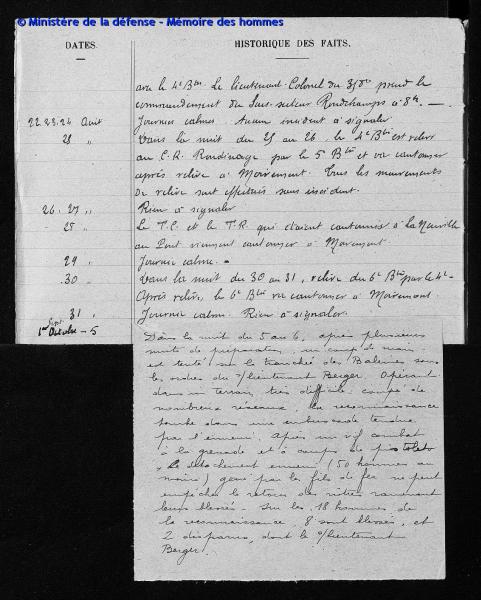 © Ministère de la défense - Mémoire des hommes
DATES. HISTORIQUE DES FAITS.
avec le 4e Bon. Le Lieutenant-Colonel du 358e prend le
commandement du Sous-secteur Rondchamps à 8h. —
22.23.24 Août Journées calmes. Aucun incident à signaler
25 " Dans la nuit du 25 au 26, le 4e Bon est relevé
au C.R. par le 5 Bon et va cantonner
après relève à Moiremont. Tous les mouvements
de relève sont effectués sans incident.
26. 27 " Rien à signaler
28 " Le T.C. et le T.R. qui étaient cantonnés à la Neuville
au Pont viennent cantonner à Moiremont.
29 " Journée calme.
30 " Dans la nuit du 30 au 31, relève du 6e Bon par le 4e
Après relève, le 6e Bon va cantonner à Moiremont.
31 " Journée calme. Rien à signaler.
Sept.
1er Octobre - 5
Dans la nuit du 5 au 6, après plusieurs
nuits de préparation, un coup de main
est tenté sur la tranchée des Baleines sous
les ordres du s/lieutenant Berger. Opérant
dans un terrain très difficile coupé de
nombreux réseaux, la reconnaissance
tombe dans une embuscade tendue
par l'ennemi. Après un vif combat
à la grenade et à coups de pistolets
le détachement ennemi (50 hommes au
moins) gêné par les fils de fer ne peut
empêcher le retour des nôtres ramenant
leurs blessés. Sur les 18 hommes de
la reconnaissance, 8 sont blessés, et
2 disparus, dont le s/lieutenant
Berger.